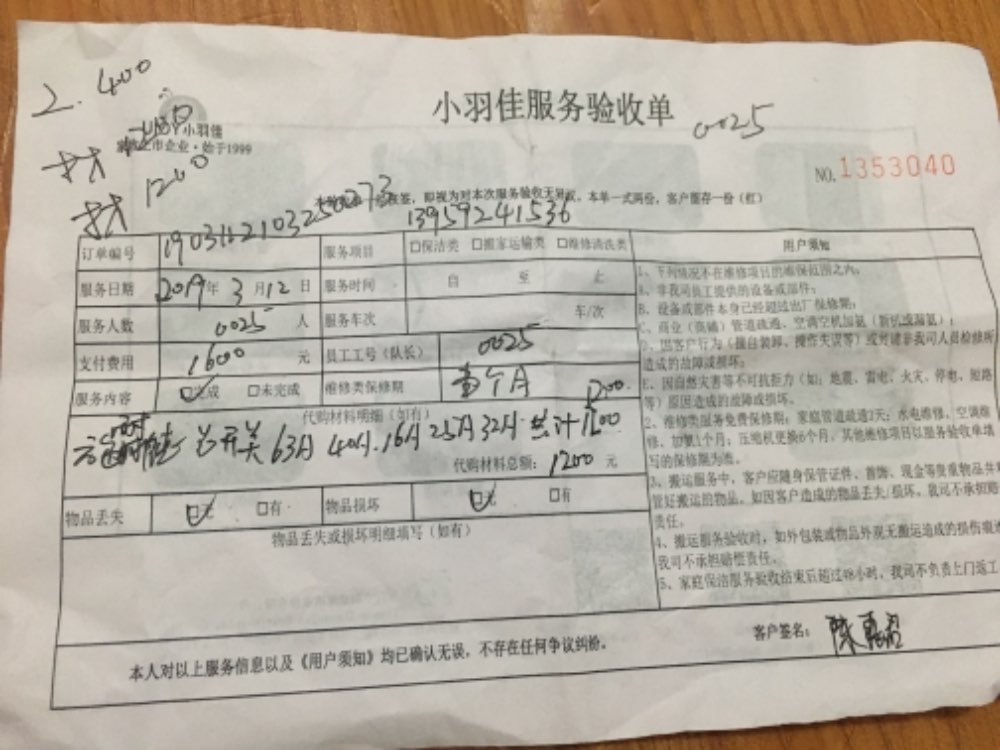 2. 400
小羽佳服务验收单
0025
小羽佳
家政上市企业·始于1999
NO. 1353040
技
技 1200
签,即视为对本次服务验收无异议,本单一式两份,客户留存一份(红)
13959241536
订单编号 服务项目 □保洁类 □搬家运输类 □维修清洗类
服务日期 2019年 3月12日 服务时间 自 至 止
服务人数 0025 人 服务车次 车/次
支付费用 1600 元 员工工号(队长) 0025
服务内容 ☑完成 □未完成 维修类保修期 壹个月
1200
代购材料明细(如有)
总开关 63A 40A. 16A 25A 32A 共计1200
代购材料总额: 1200 元
物品丢失 ☑无 □有 物品损坏 ☑无 □有
物品丢失或损坏明细填写(如有)
用户须知
1、下列情况不在维修项目的维保范围之内:
A、非我司员工提供的设备或部件;
B、设备或部件本身已经超过出厂保修期;
C、商业(商铺)管道疏通、空调空机加氨(新机或漏氨);
D、因客户行为(擅自装卸、操作失误等)或对请非我司人员检修所
造成的故障或损坏。
E、因自然灾害等不可抗拒力(如:地震、雷电、火灾、停电、短路
等)原因造成的故障或损坏。
2、维修类服务免费保修期:家庭管道疏通7天;水电维修、空调维
修、加氟1个月;压缩机更换6个月,其他维修项目以服务验收单填
写的保修期为准。
3、搬运服务中,客户应随身保管证件、首饰、现金等贵重物品并
管好搬运的物品。如因客户造成的物品丢失/损坏,我司不承担赔
责任。
4、搬运服务验收时,如外包装或物品外观无搬运造成的损伤痕
我司不承担赔偿责任。
5、家庭保洁服务验收结束后超过48小时,我司不负责上门返工
客户签名:
本人对以上服务信息以及《用户须知》均已确认无误,不存在任何争议纠纷。